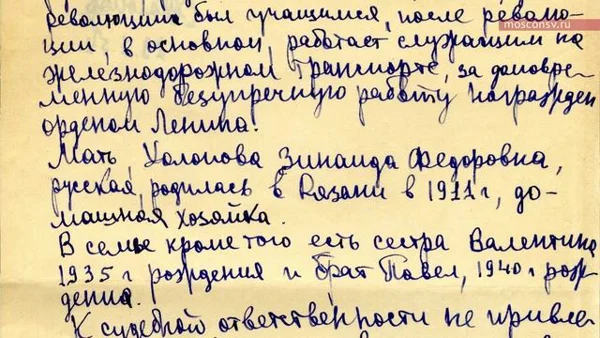 mosconsv.ru
революции был учащимся, после револю-
ции, в основном, работает служащим на
железнодорожном транспорте, за долговре-
менную безупречную работу награжден
орденом Ленина.
Мать, Холопова Зинаида Федоровна,
русская, родилась в Рязани в 1911 г, до-
машняя хозяйка.
В семье кроме того есть сестра Валентина
1935 г рождения и брат Павел, 1940 г рож-
дения.
К судебной ответственности не привле-